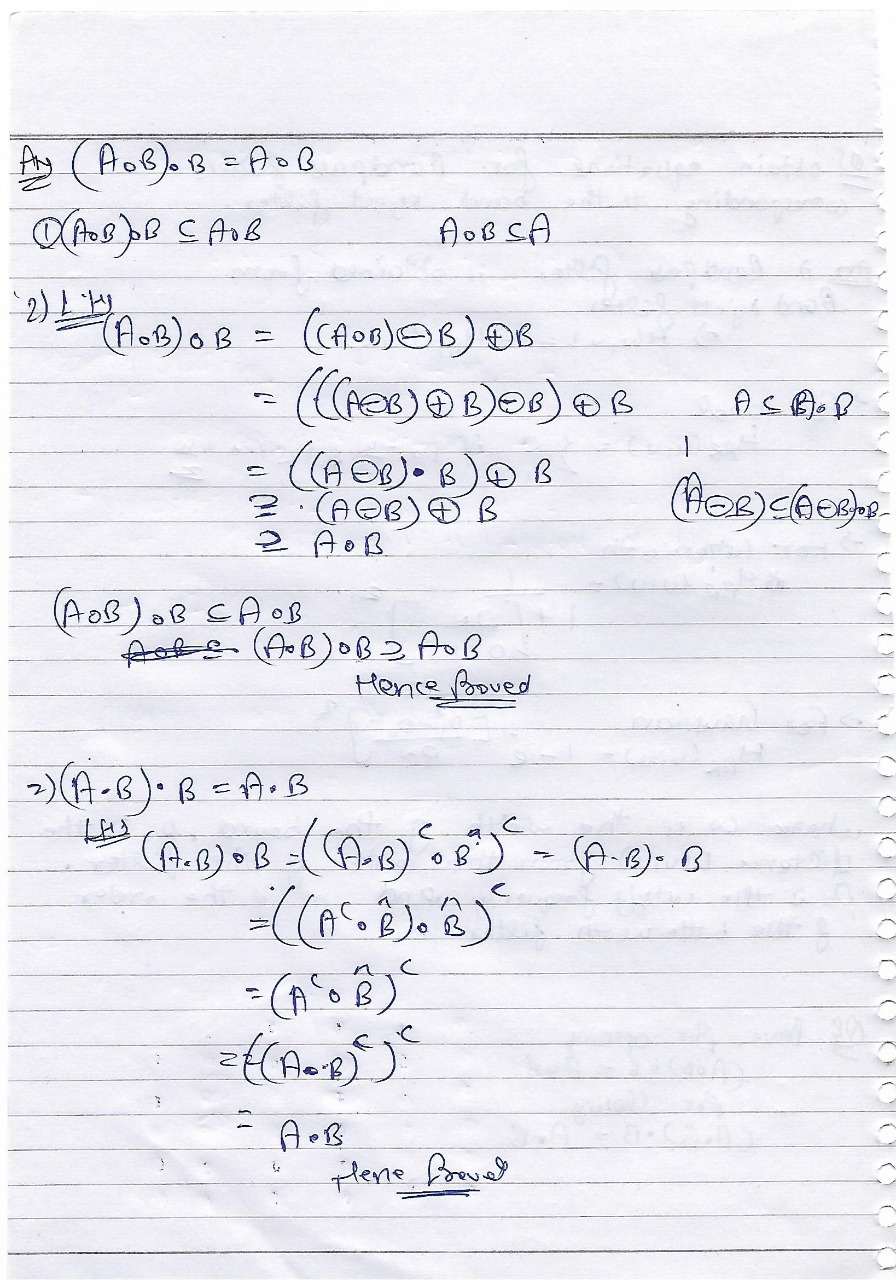 Ans (A∘B)∘B = A∘B
① (A∘B)∘B ⊆ A∘B A∘B ⊆ A
2) LHS
(A∘B)∘B = ((A∘B)⊖B)⊕B
= (((A⊖B)⊕B)⊖B)⊕B A ⊆ A∘B
= ((A⊖B)•B)⊕B
⊇ (A⊖B)⊕B (A⊖B)⊆(A⊖B)∘B
⊇ A∘B
(A∘B)∘B ⊆ A∘B
(A∘B)∘B ⊇ A∘B
Hence Proved
2) (A•B)•B = A•B
LHS
(A•B)∘B = ((A•B)ᶜ∘B̂)ᶜ = (A•B)•B
= ((Aᶜ∘B̂)∘B̂)ᶜ
= (Aᶜ∘B̂)ᶜ
= ((A•B)ᶜ)ᶜ
= A•B
Hence Proved